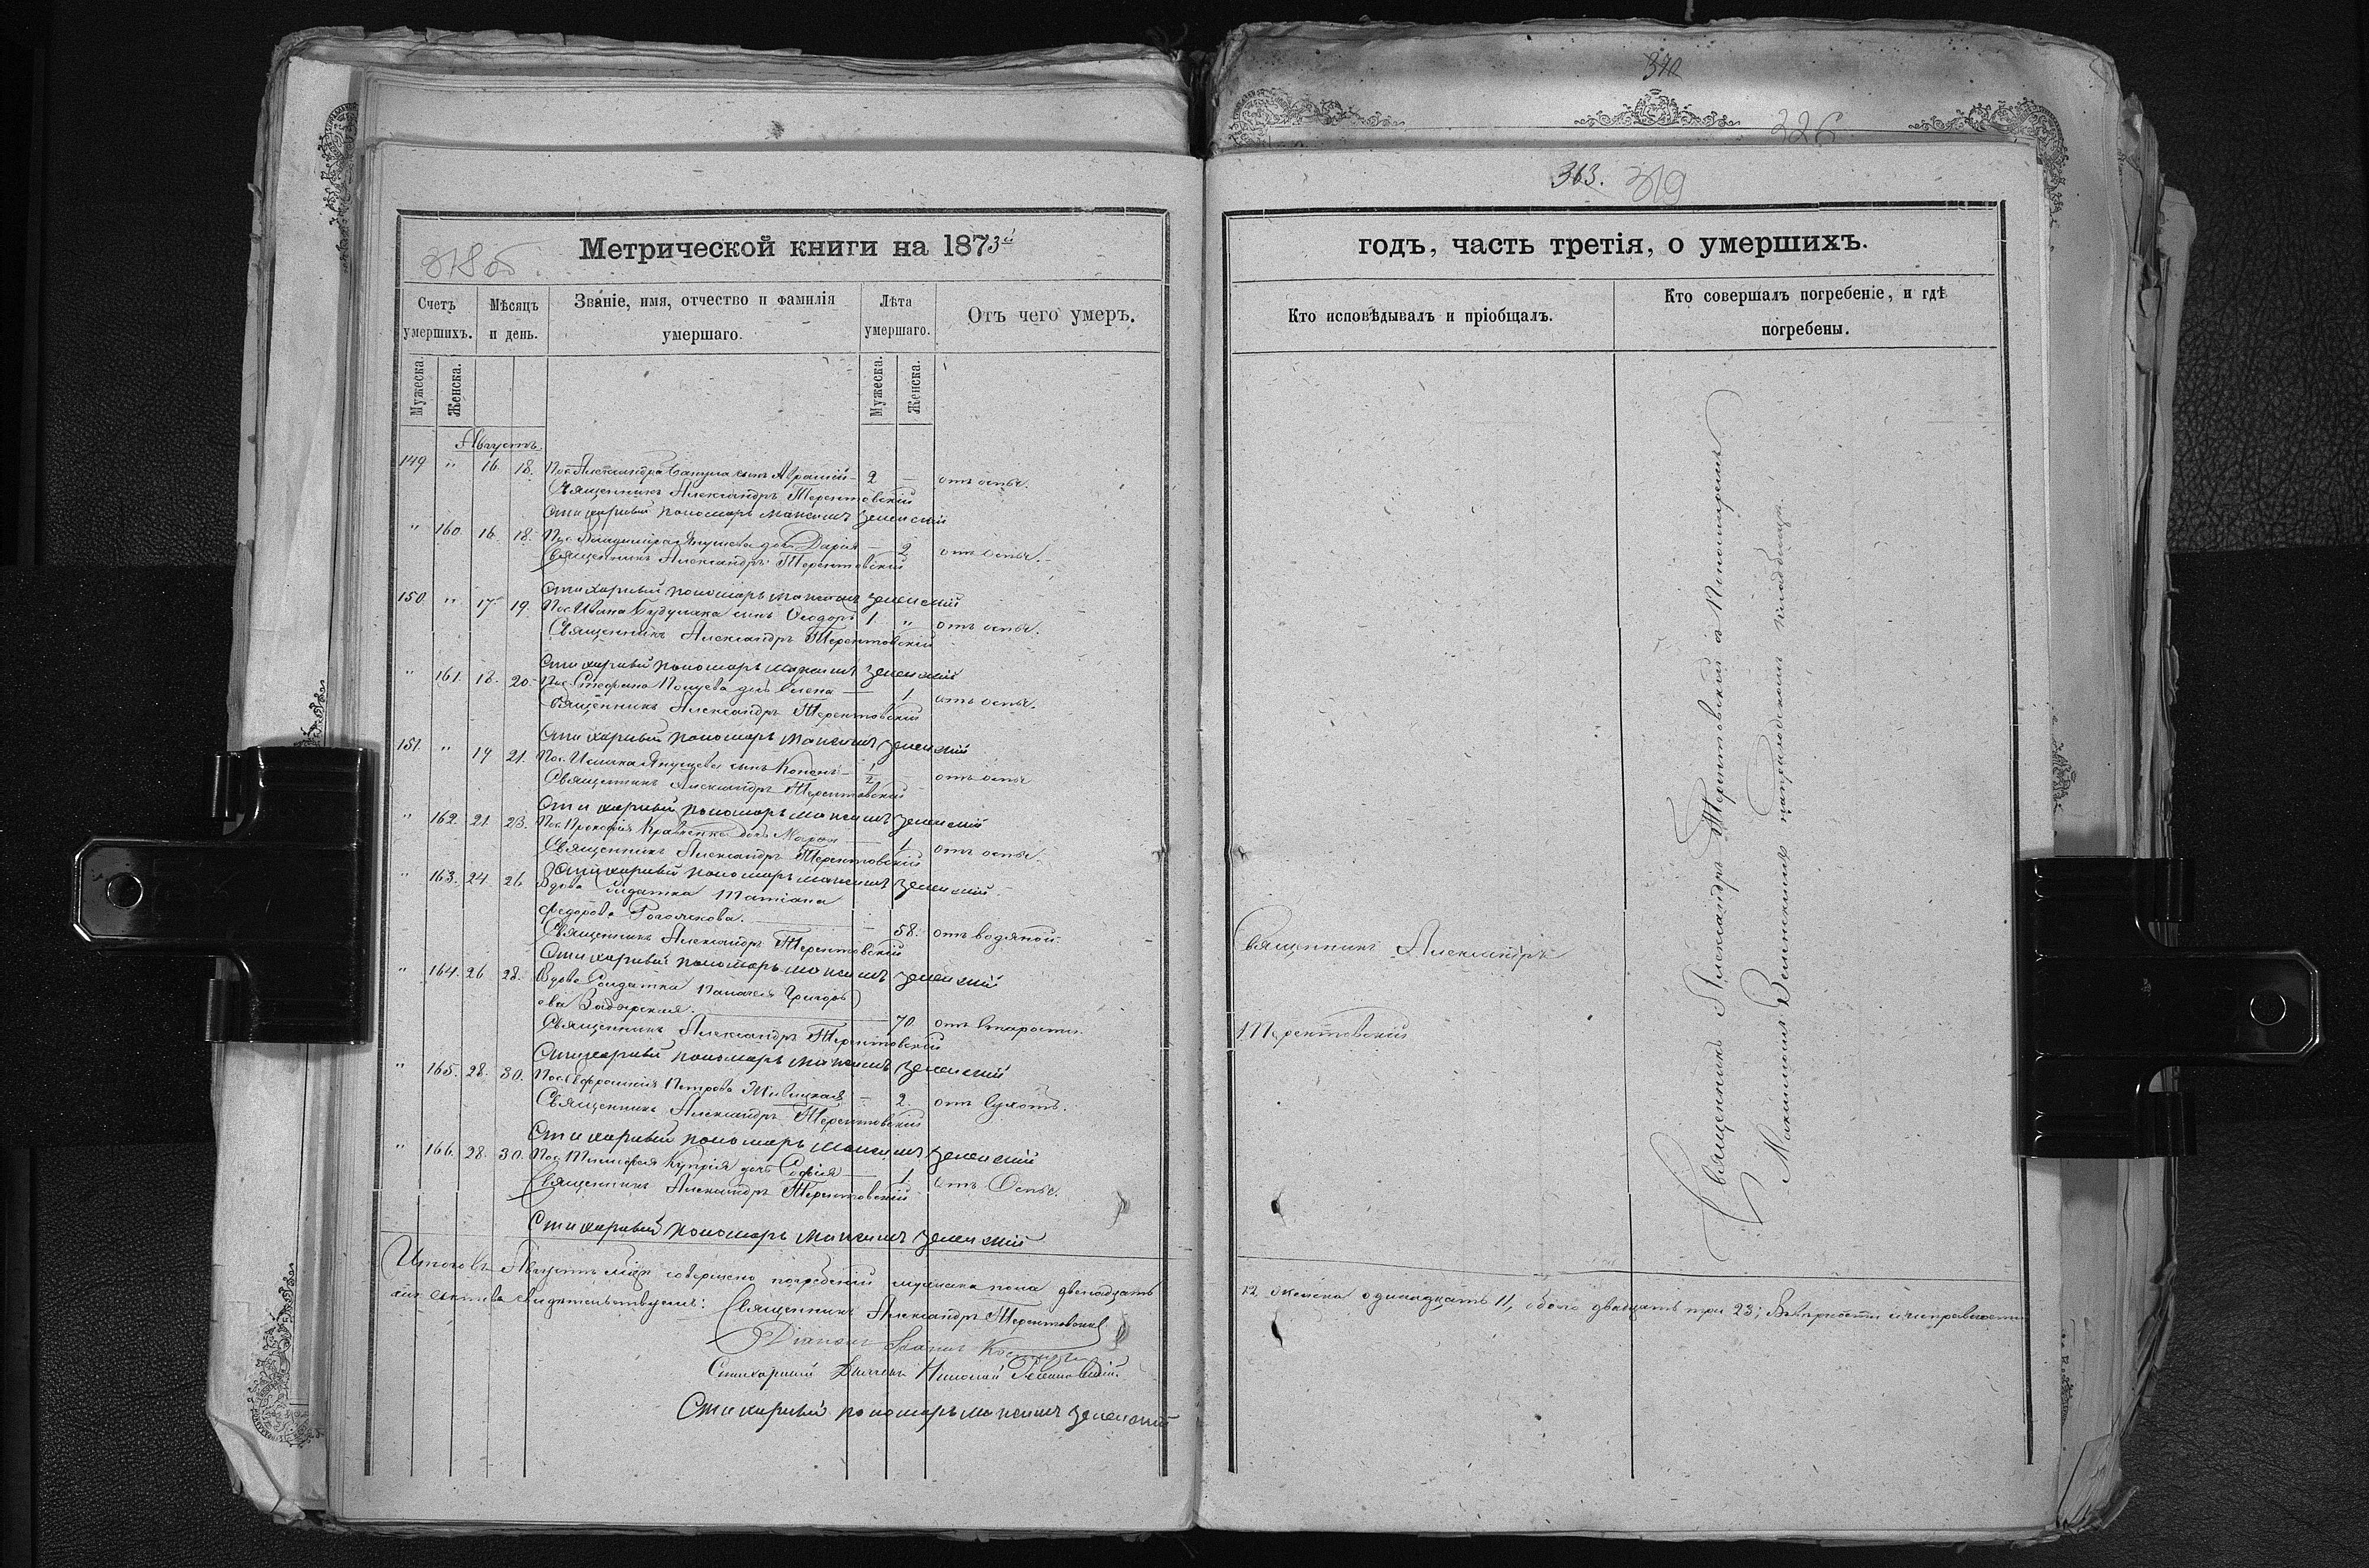 310
326
363. 319
318 об
Метрической книги на 1873й
годъ, часть третія, о умершихъ.
Счетъ умершихъ.
Мѣсяцъ и день.
Званіе, имя, отчество и фамилія умершаго.
Лѣта умершаго.
Отъ чего умеръ.
Кто исповѣдывалъ и пріобщалъ.
Кто совершалъ погребеніе, и гдѣ погребены.
Мужеска.
Женска.
Мужеска.
Женска.
Августъ.
149 " 16. 18. Пос. Александра сынъ 2 — отъ оспы.
Священникъ Александръ Терентовскій
Стихарный пономарь Максимъ Зеленскій
" 160. 16. 18. Пос. Владимира дочь Дарія — 2 отъ оспы.
Священникъ Александръ Терентовскій
Стихарный пономарь Максимъ Зеленскій
150 " 17. 19. Пос. Ивана сынъ Ѳеодоръ 1 " отъ оспы.
Священникъ Александръ Терентовскій
Стихарный пономарь Максимъ Зеленскій
" 161. 18. 20. Пос. Стефана дочь Елена — 1. отъ оспы.
Священникъ Александръ Терентовскій
Стихарный пономарь Максимъ Зеленскій
151. " 19 21. Пос. сынъ Кононъ — 1/2 отъ оспы
Священникъ Александръ Терентовскій
Стихарный пономарь Максимъ Зеленскій
" 162. 21. 23. Пос. Прокофія Кравченко дочь — 1 отъ оспы.
Священникъ Александръ Терентовскій
Стихарный пономарь Максимъ Зеленскій
" 163. 24. 26 Вдова Солдатка Татіана
Федорова — 58. отъ водяной.
Священникъ Александръ Терентовскій
Стихарный пономарь Максимъ Зеленскій
" 164. 26 28. Вдова Солдатка Григорь
ева — 70 отъ Старости.
Священникъ Александръ Терентовскій
Стихарный пономарь Максимъ Зеленскій
" 165. 28. 30. Пос. Петрова — 2. отъ Сухотъ.
Священникъ Александръ Терентовскій
Стихарный пономарь Максимъ Зеленскій
" 166. 28. 30. Пос. Тимофея дочь Софія — 1. отъ Оспы.
Священникъ Александръ Терентовскій
Стихарный пономарь Максимъ Зеленскій
Священникъ Александръ
Терентовскій
Священникъ Александръ Терентовскій съ Пономаремъ
Максимомъ Зеленскимъ на приходскомъ кладбищѣ.
Итого въ Августѣ мѣсяцѣ совершено погребеній мужеска пола двенадцать
12, женска одинадцать 11, обоего двадцать три 23; въ вѣрности и исправности
свидѣтельствуемъ: Священникъ Александръ Терентовскій
Діаконъ
Стихарный Дьячекъ Николай
Стихарный пономарь Максимъ Зеленскій